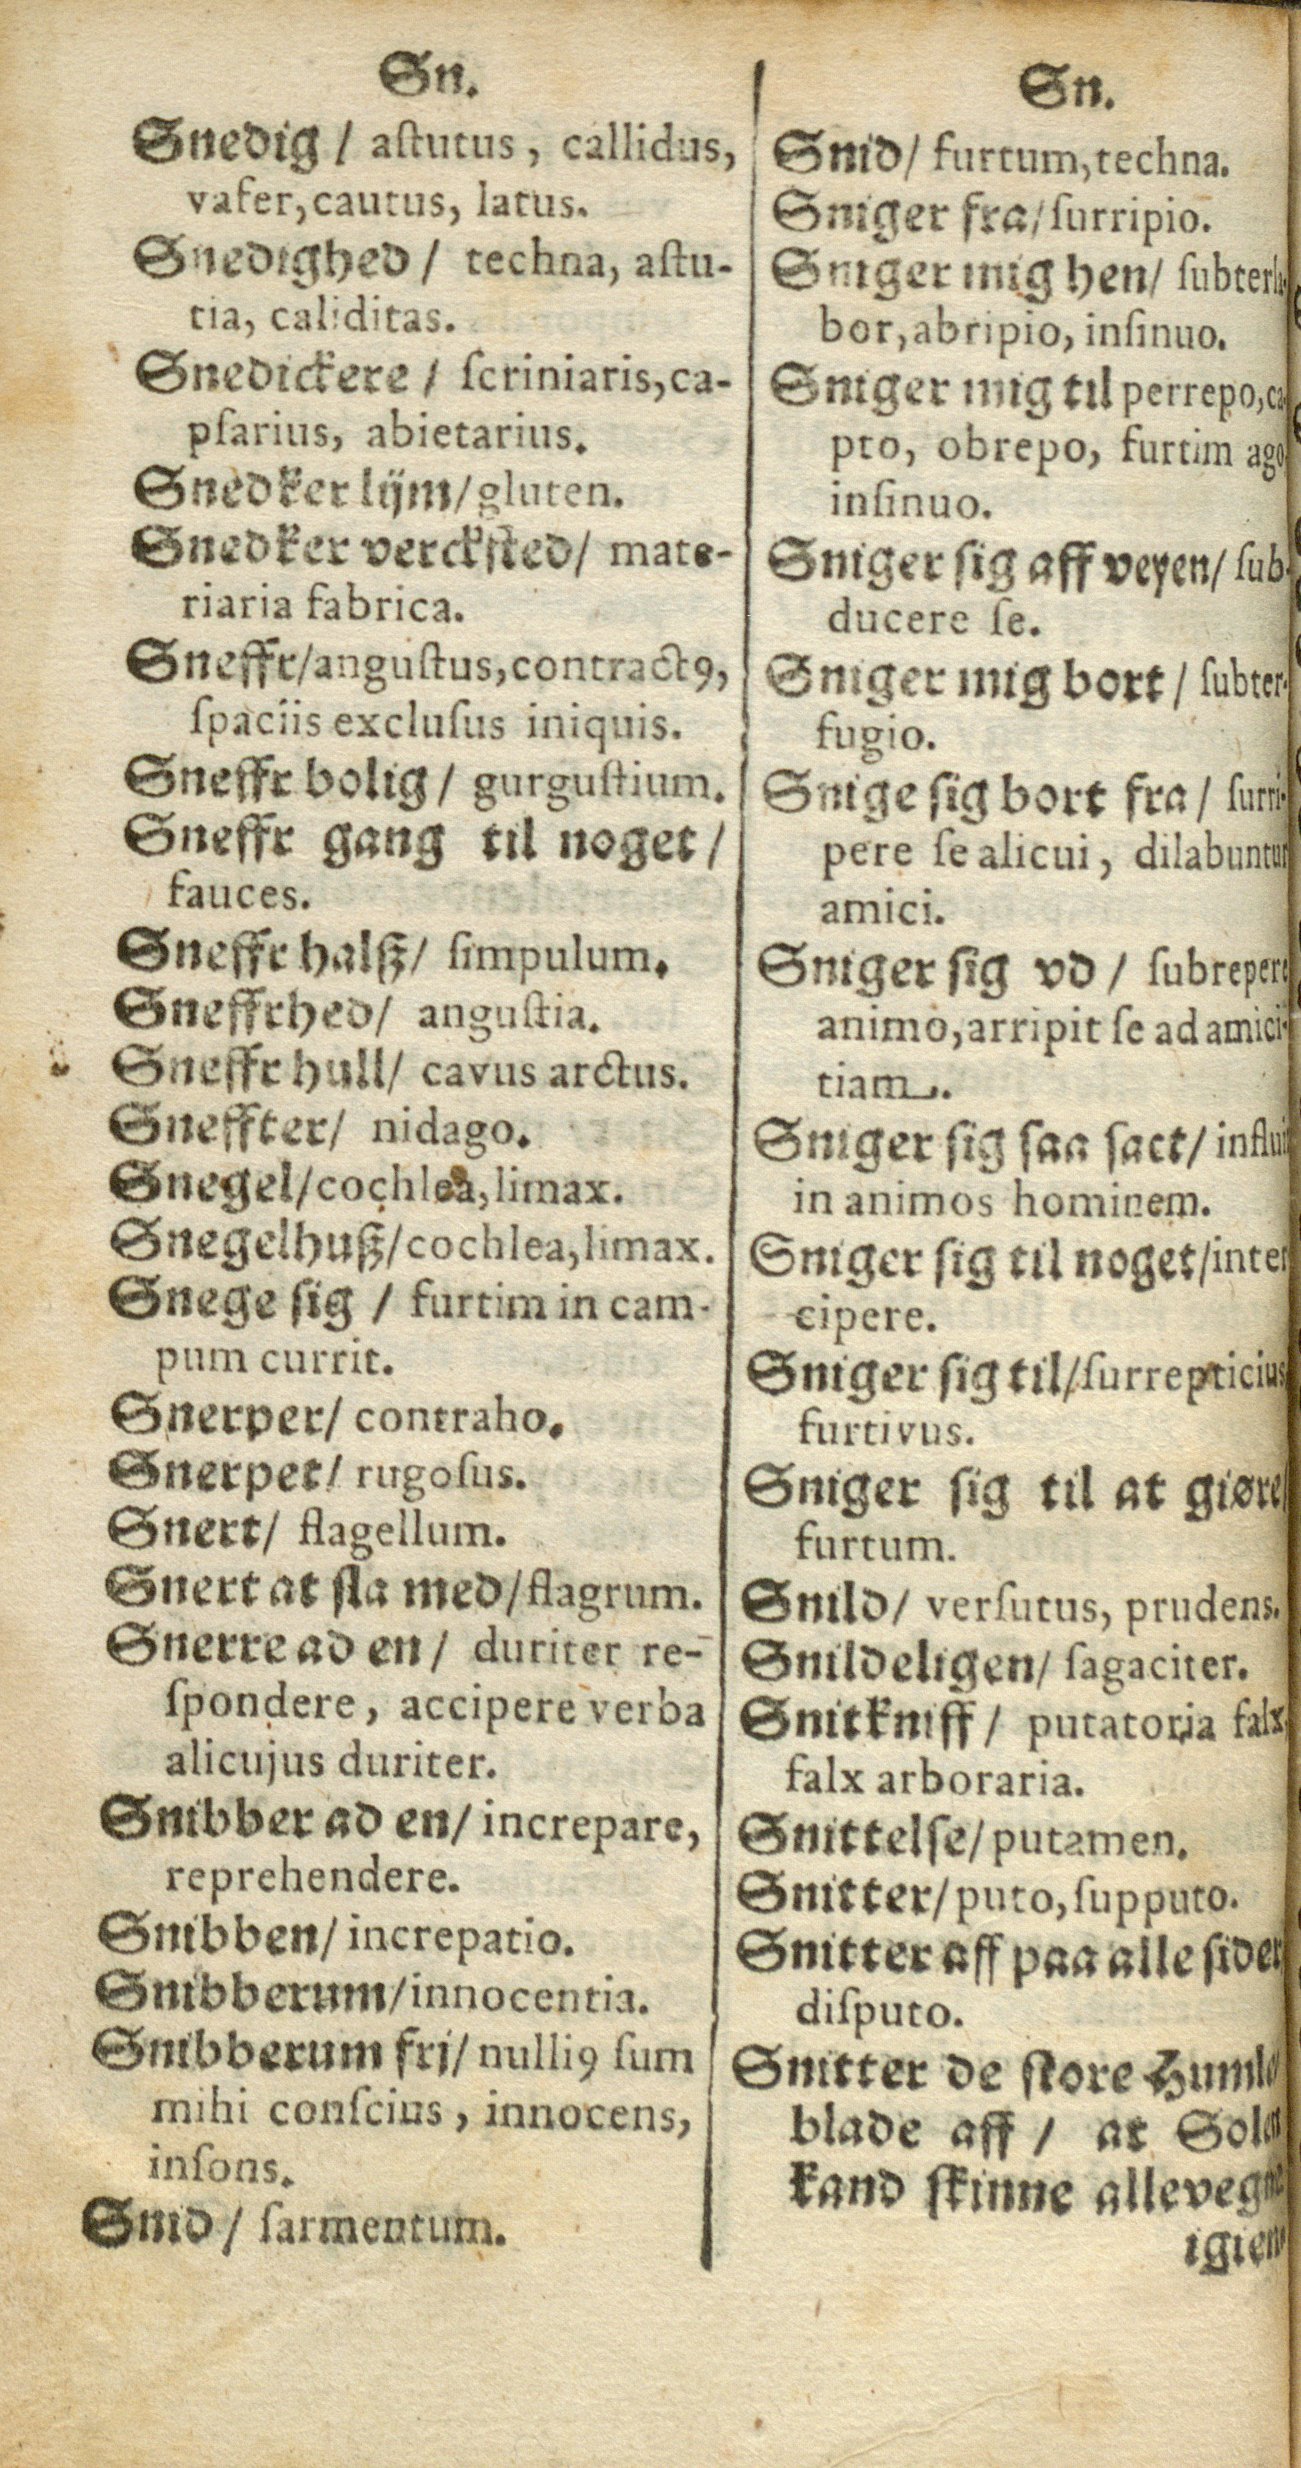 Sn.
Snedig / aſtutus, callidus,
vafer, cautus, latus.
Snedighed / techna, aſtu-
tia, caliditas.
Snedickere / ſcriniaris, ca-
pſarius, abietarius.
Snedker lijm / gluten.
Snedker verckſted / mate-
riaria fabrica.
Sneffr / anguſtus, contractꝰ,
ſpaciis excluſus iniquis.
Sneffr bolig / gurguſtium.
Sneffr gang til noget /
fauces.
Sneffr halß / ſimpulum.
Sneffrhed / anguſtia.
Sneffr hull / cavus arctus.
Sneffter / nidago.
Snegel / cochlea, limax.
Snegelhuß / cochlea, limax.
Snege ſig / furtim in cam-
pum currit.
Snerper / contraho.
Snerpet / rugoſus.
Snert / flagellum.
Snert at ſla med / flagrum.
Snerre ad en / duriter re-
ſpondere, accipere verba
alicujus duriter.
Snibber ad en / increpare,
reprehendere.
Snibben / increpatio.
Snibberum / innocentia.
Snibberum frj / nulliꝰ ſum
mihi conſcius, innocens,
inſons.
Snid / ſarmentum.
Sn.
Snid / furtum, techna.
Sniger fra / ſurripio.
Sniger mig hen / ſubterla-
bor, abripio, inſinuo.
Sniger mig til perrepo, ca-
pto, obrepo, furtim ago
inſinuo.
Sniger ſig aff veyen / ſub-
ducere ſe.
Sniger mig bort / ſubter-
fugio.
Snige ſig bort fra / ſurri-
pere ſe alicui, dilabuntur
amici.
Sniger ſig vd / ſubrepere
animo, arripit ſe ad amici-
tiam.
Sniger ſig ſaa ſact / influit
in animos hominem.
Sniger ſig til noget / inter
cipere.
Sniger ſig til / ſurrepticius
furtivus.
Sniger ſig til at giøre /
furtum.
Snild / verſutus, prudens.
Snildeligen / ſagaciter.
Snitkniff / putatoria falx,
falx arboraria.
Snittelſe / putamen.
Snitter / puto, ſupputo.
Snitter aff paa alle ſider
diſputo.
Snitter de ſtore Humle
blade aff / at Solen
kand ſkinne allevegne
igien